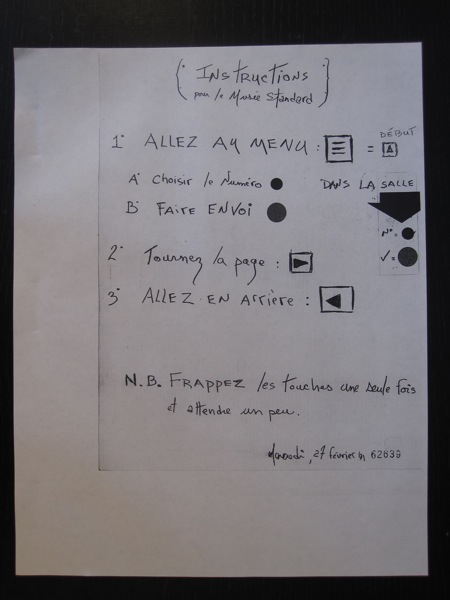 Instructions
pour le Musée Standard
1° ALLEZ AU MENU : = DÉBUT A
A° Choisir le Numéro
DANS LA SALLE
B° FAIRE ENVOI
N° =
√ =
2° Tournez la page :
3° ALLEZ EN Arrière :
N.B. FRAPPEZ les touches une seule fois
et attendre un peu.
27 février 62638